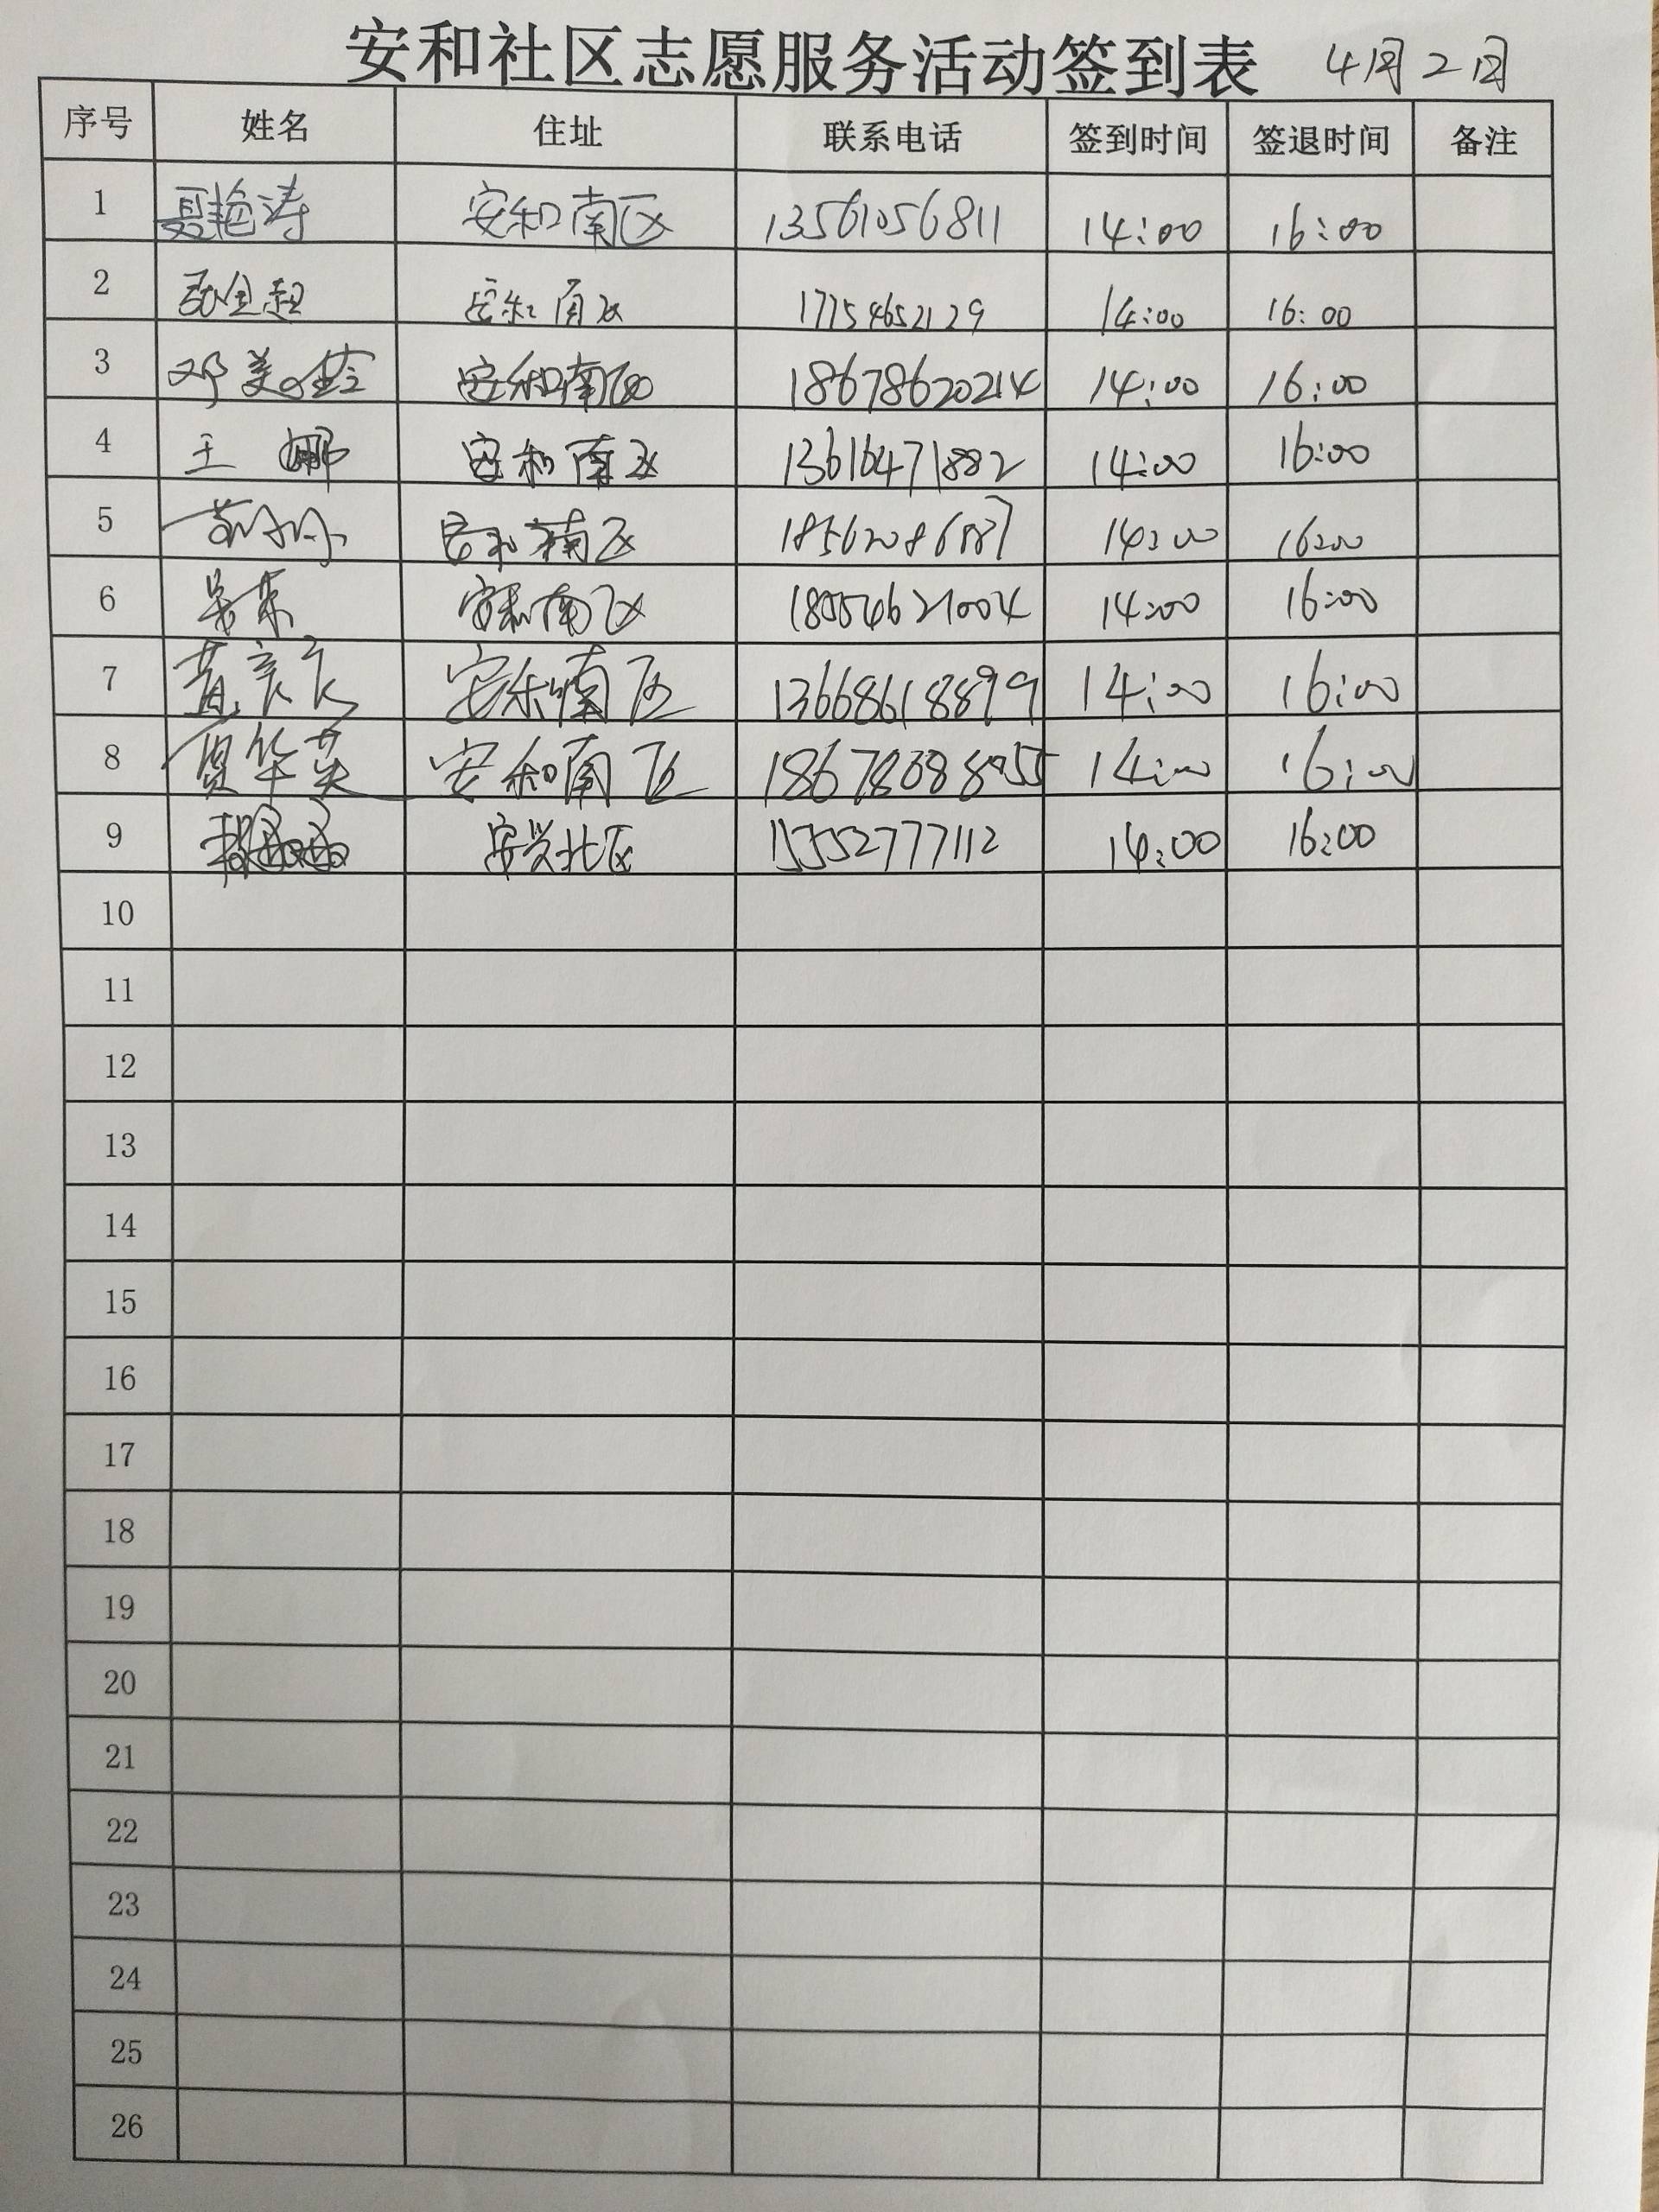 安和社区志愿服务活动签到表 4月2日
序号 姓名 住址 联系电话 签到时间 签退时间 备注
1 聂艳涛 安和南区 13561056811 14:00 16:00
2 安和南区 17754652129 14:00 16:00
3 邓美玲 安和南区 18678620214 14:00 16:00
4 王娜 安和南区 13616471882 14:00 16:00
5 安和南区 14:00 16:00
6 吴荣 安和南区 18554621004 14:00 16:00
7 安和南区 13668618899 14:00 16:00
8 贾华英 安和南区 14:00 16:00
9 安兴北区 15552777112 14:00 16:00
10
11
12
13
14
15
16
17
18
19
20
21
22
23
24
25
26